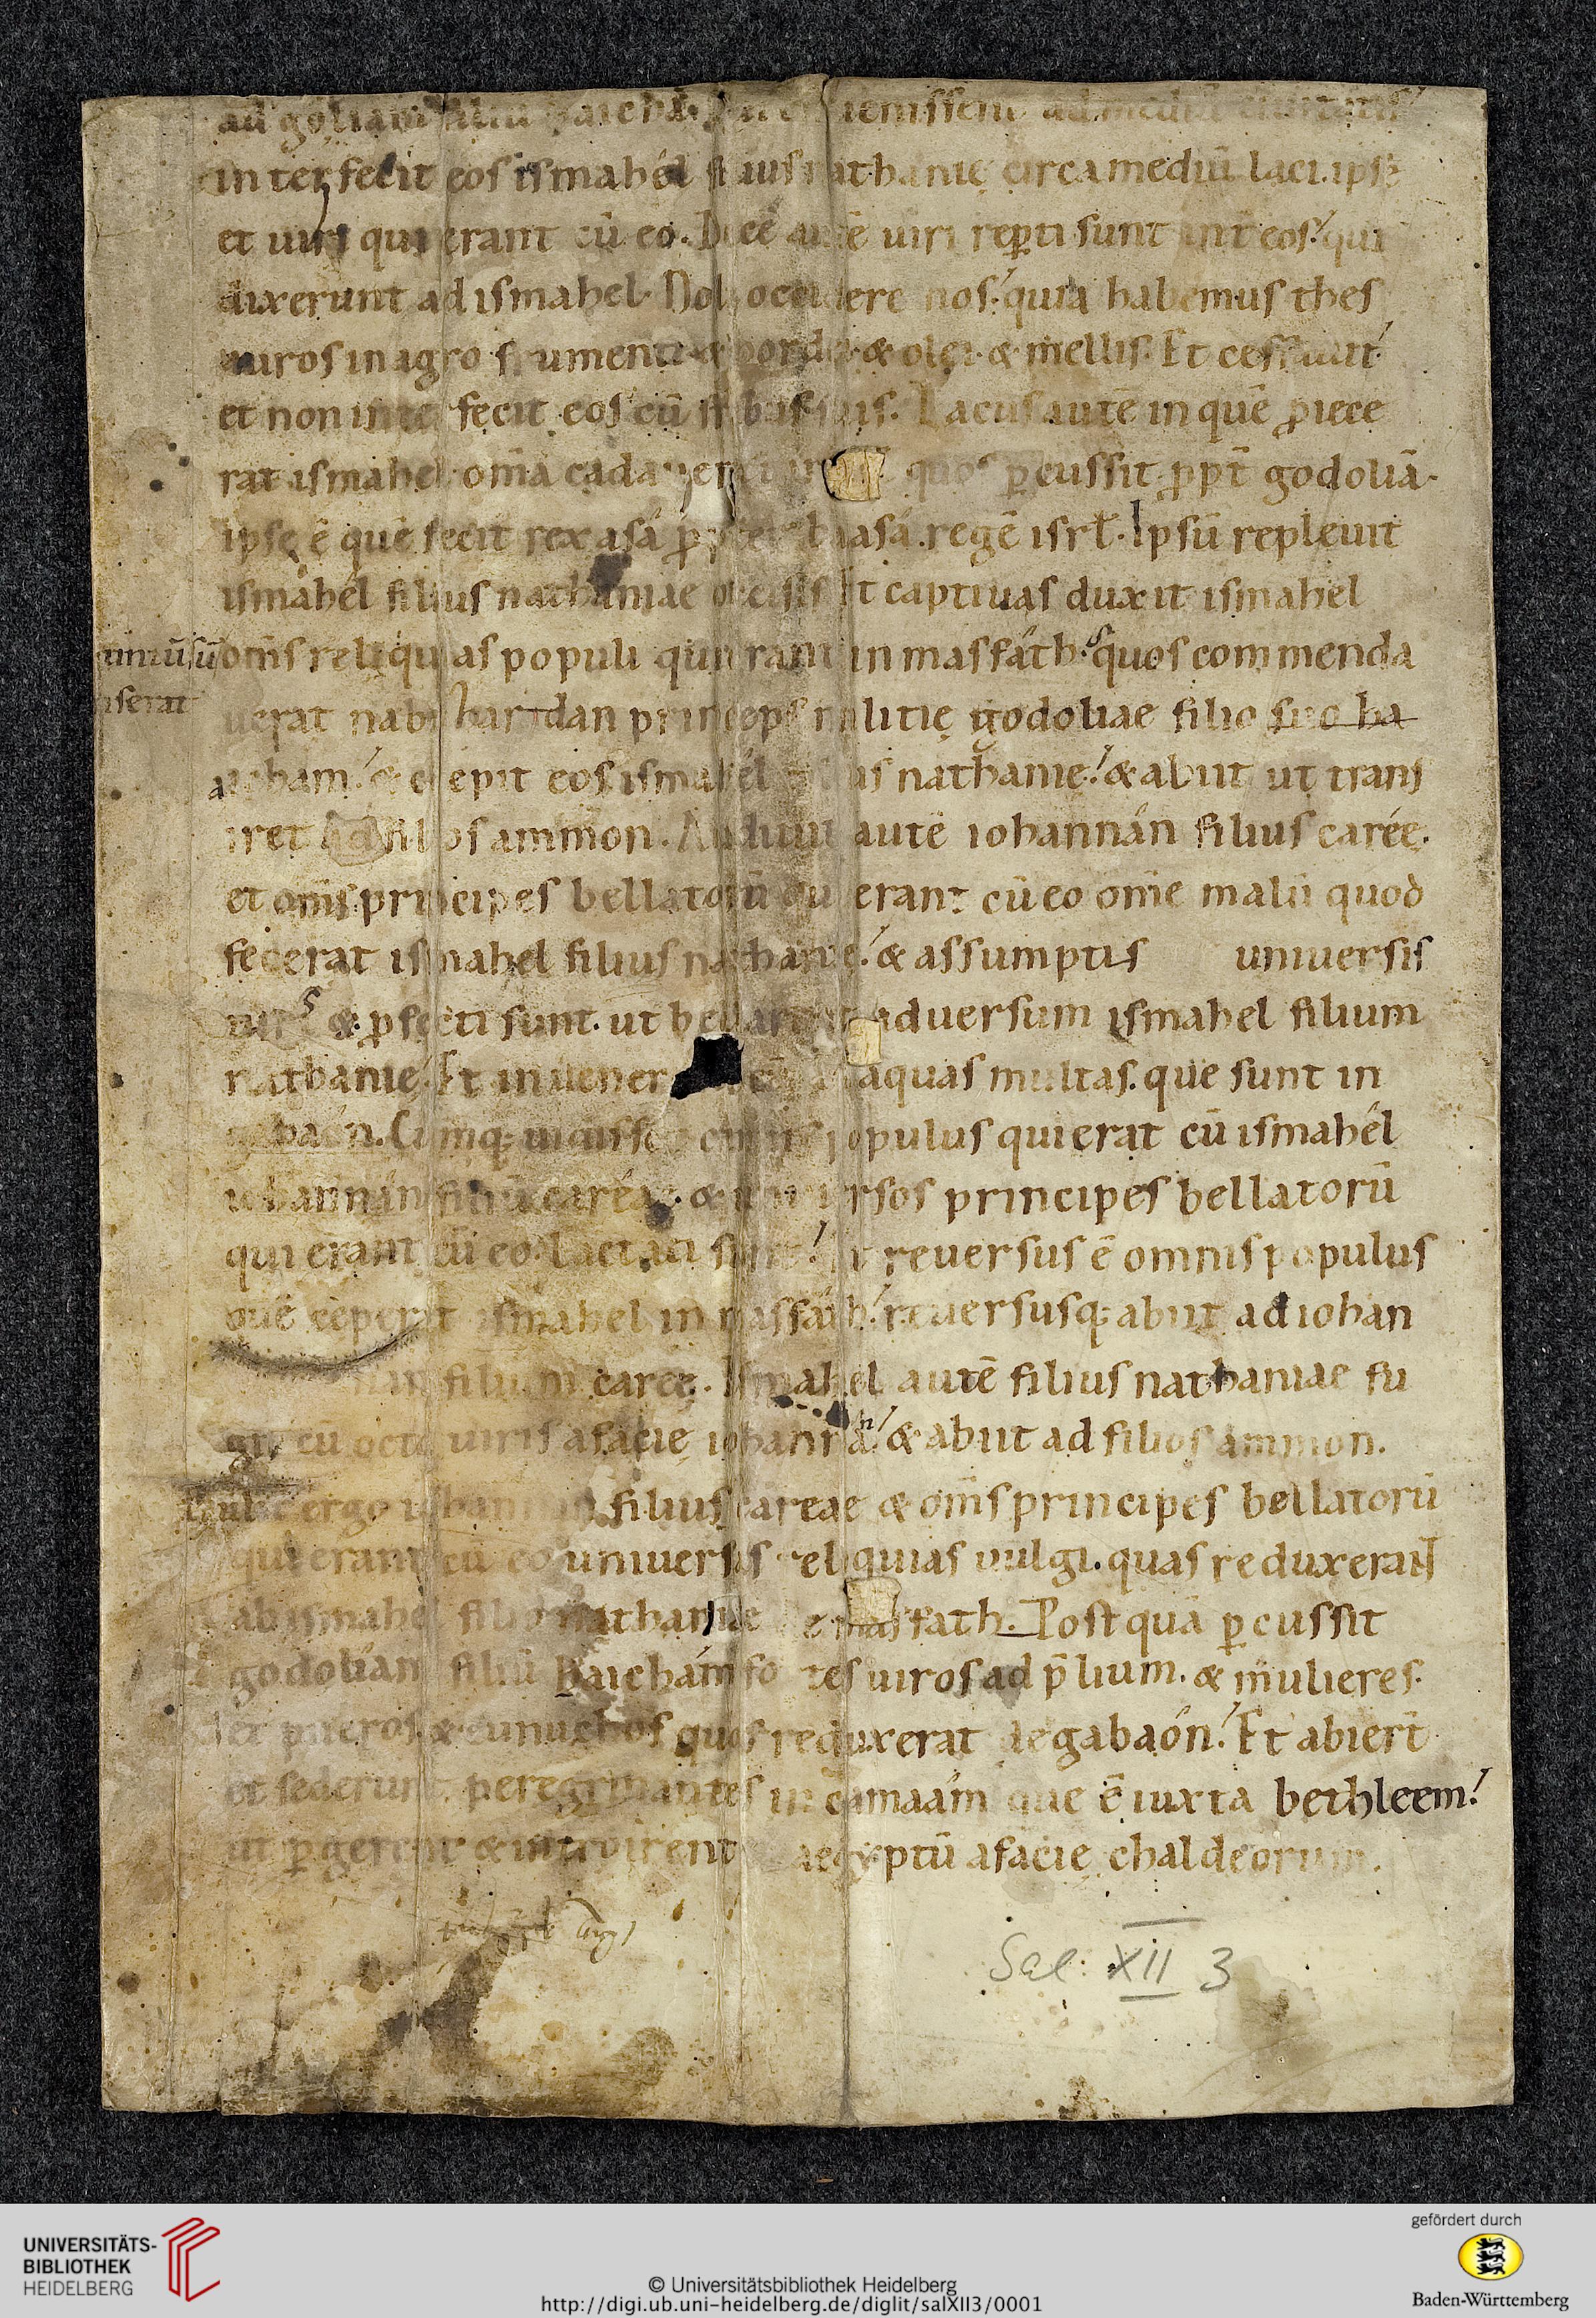 ad goliam filiu
interfecit eos ismahel filius nathanię circa mediū laci. ipse
et uiri qui erant cū eo. Decē autē uiri repti sunt int eos. qui
dixerunt ad ismahel. Noli occidere nos. quia habemus thes
auros in agro frumenti & hordei & olei. & mellis. Et cessauit
et non interfecit eos cū frībus suis. Lacus autē in quē proiece
rat ismahel om̄a cadauera quos pcussit propt godoliā.
ipse ē quē fecit rex asá baasá. regē isrl. Ipsū repleuit
ismáhél filius nathaniae occisis. Et captiuas duxit ismahel
om̄s reliquias populi qui erant in masfáth. quos commenda
uerat nabuzardan princeps militię godoliae filio suo ha
aicham. & cępit eos ismahél filius nathanię. & abiit ut trans
iret ad filios ammon. Audiuit autē iohannán filius carée.
et om̄s principes bellatorū qui erant cū eo om̄e malū quod
fecerat ismahel filius nathanię. & assumptis uniuersis
uiris & pfecti sunt. ut bellarent aduersum ismahel filium
nathanię. Et inuener aquas multas. que sunt in
gabaón. Cūmq; uidisset omnis populus qui erat cū ismahél
iohannán filiū caréae. & uniuersos principes bellatorū
qui erant cū eo. laetati sunt. Et reuersus ē omnis populus
quē cēperat ismahel in masfáth. reuersusq; abiit ad iohan
nan filium caréę. Ismahel autē filius nathaniae fu
git cū octo uiris a facie iohannán. & abiit ad filios ammon.
Tulit ergo iohannan filius careae & om̄s principes bellatorū
qui erant cū eo uniuersas reliquias uulgi. quas reduxerant
ab ismahel filio nathaniae e masfath. Postquā pcussit
godolián filiū haichám fortes uiros ad plium. & mulieres.
et pueros. & eunuchos quos reduxerat de gabaón. Et abiert
et sederunt peregrinantes in camaám que ē iuxta bethleem.
ut pgerent & introirent aegyptū a facie chaldeorum.
Sal: XII 3
UNIVERSITÄTS-
BIBLIOTHEK
HEIDELBERG
© Universitätsbibliothek Heidelberg
http://digi.ub.uni-heidelberg.de/diglit/salXII3/0001
gefördert durch
Baden-Württemberg